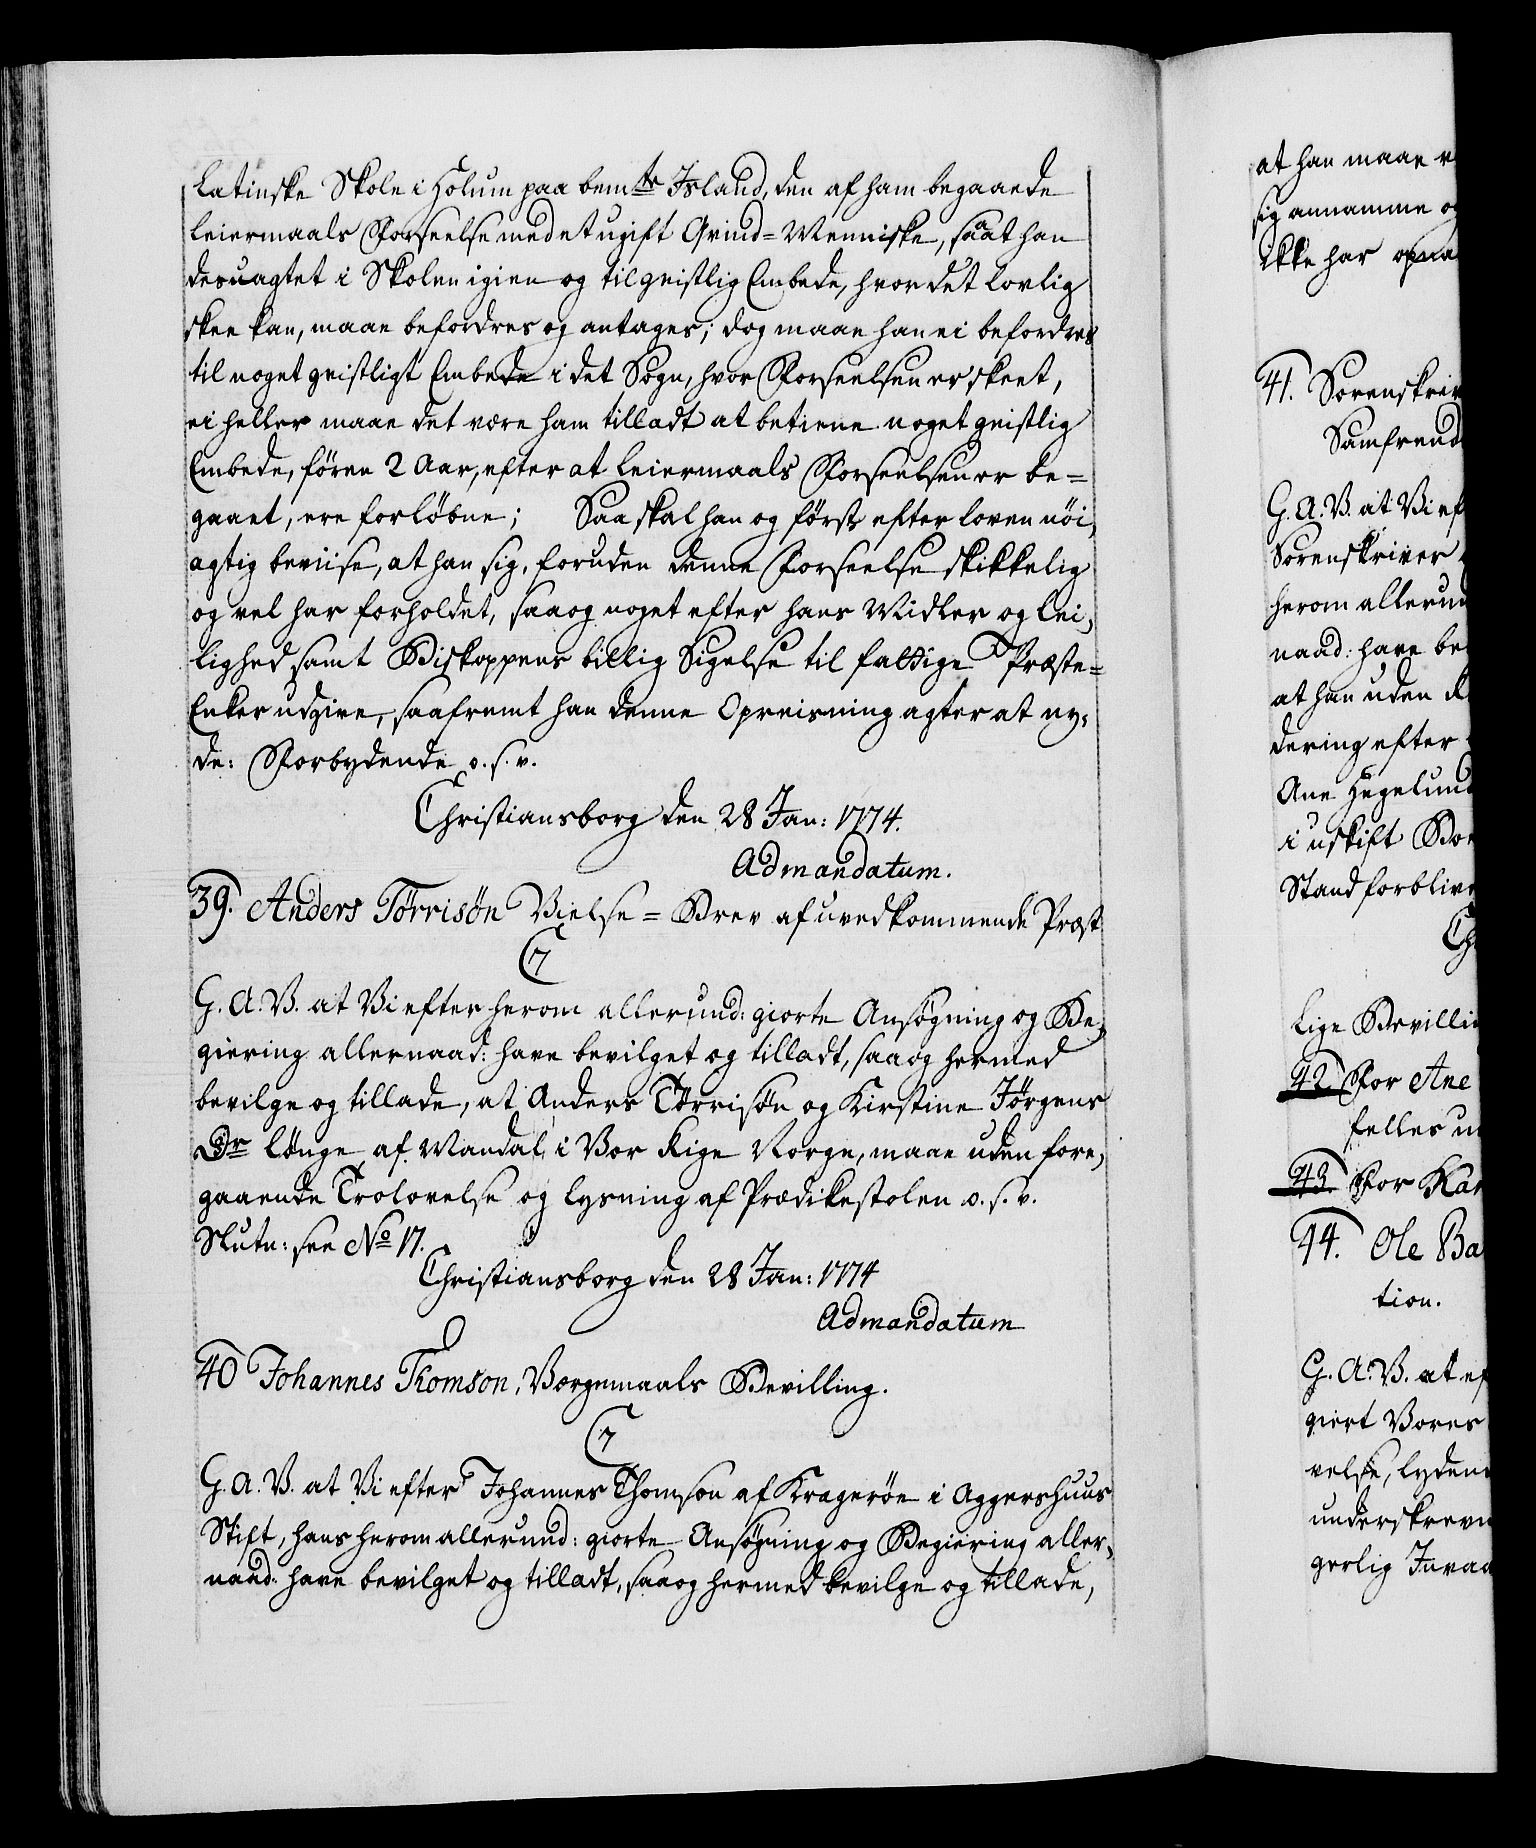 Latinske Skole i Holum paa bem.te Island, den af ham begaaede
Leiermaals Forseelse med et ugift Qvind-Menniske, saa at han
desuagtet i Skolen igien og til geistlig Embede, hvor det lovlig
skee kan, maae befordres og antages; dog maae han ei befordres
til noget geistligt Embede i det Sogn, hvor Forseelsen er skeet,
ei heller maae det være ham tilladt at betiene noget geistlig
Embede, føren 2 Aar, efter at Leiermaals Forseelsen er be-
gaaet, ere forløbne; Saa skal han og først efter Loven nöi,
agtig beviise, at han sig, foruden denne Forseelse skikkelig
og vel har forholdet, saa og noget efter hans Midler og Lei,
lighed samt Biskoppens billig Sigelse til fattige Præste-
Enker udgive, saafremt han denne Opreisning agter at ny,
de: Forbydende o. s. v.
Christiansborg den 28 Jan: 1774.
Ad mandatum.
39. Anders Tørrisøn Vielse-Brev af uvedkommende Præst
C7
G. A. V. at Vi efter herom allerund: giorte Ansøgning og Be,
giering allernaad: have bevilget og tilladt, saa og hermed
bevilge og tillade, at Anders Tørrisøn og Kirstine Jørgens
Dr Lønge af Mandal i Vor Rige Norge, maae uden fore,
gaaende Trolovelse og Lysning af Prædikestolen o. s. v.
Slutn: see No 17.
Christiansborg den 28 Jan: 1774
Ad mandatum
40 Johannes Thomson, Værgemaals Bevilling.
C7
G. A. V. at Vi efter Johannes Thomson af Kragerøe i Aggershuus
Stift, hans herom allerund: giorte Ansøgning og Begiering aller,
naad: have bevilget og tilladt, saa og hermed bevilge og tillade,
at han maae
sig annamme og
ikke har opna
41. Sorenskriv
Samfrend
G. A. V. at Vi ef
Sorenskriver
herom allerun
naad: have be
at han uden R
dering efter
Ane Hegelund
i uskift Boe
Stand forblive
Ch
Lige Bevillin
42 For Ane
felles u
43. For Kar
44. Ole Ba
tion.
G. A. V. at ef
giert Vores
velse, lyden
underskreven
gerlig Invaa